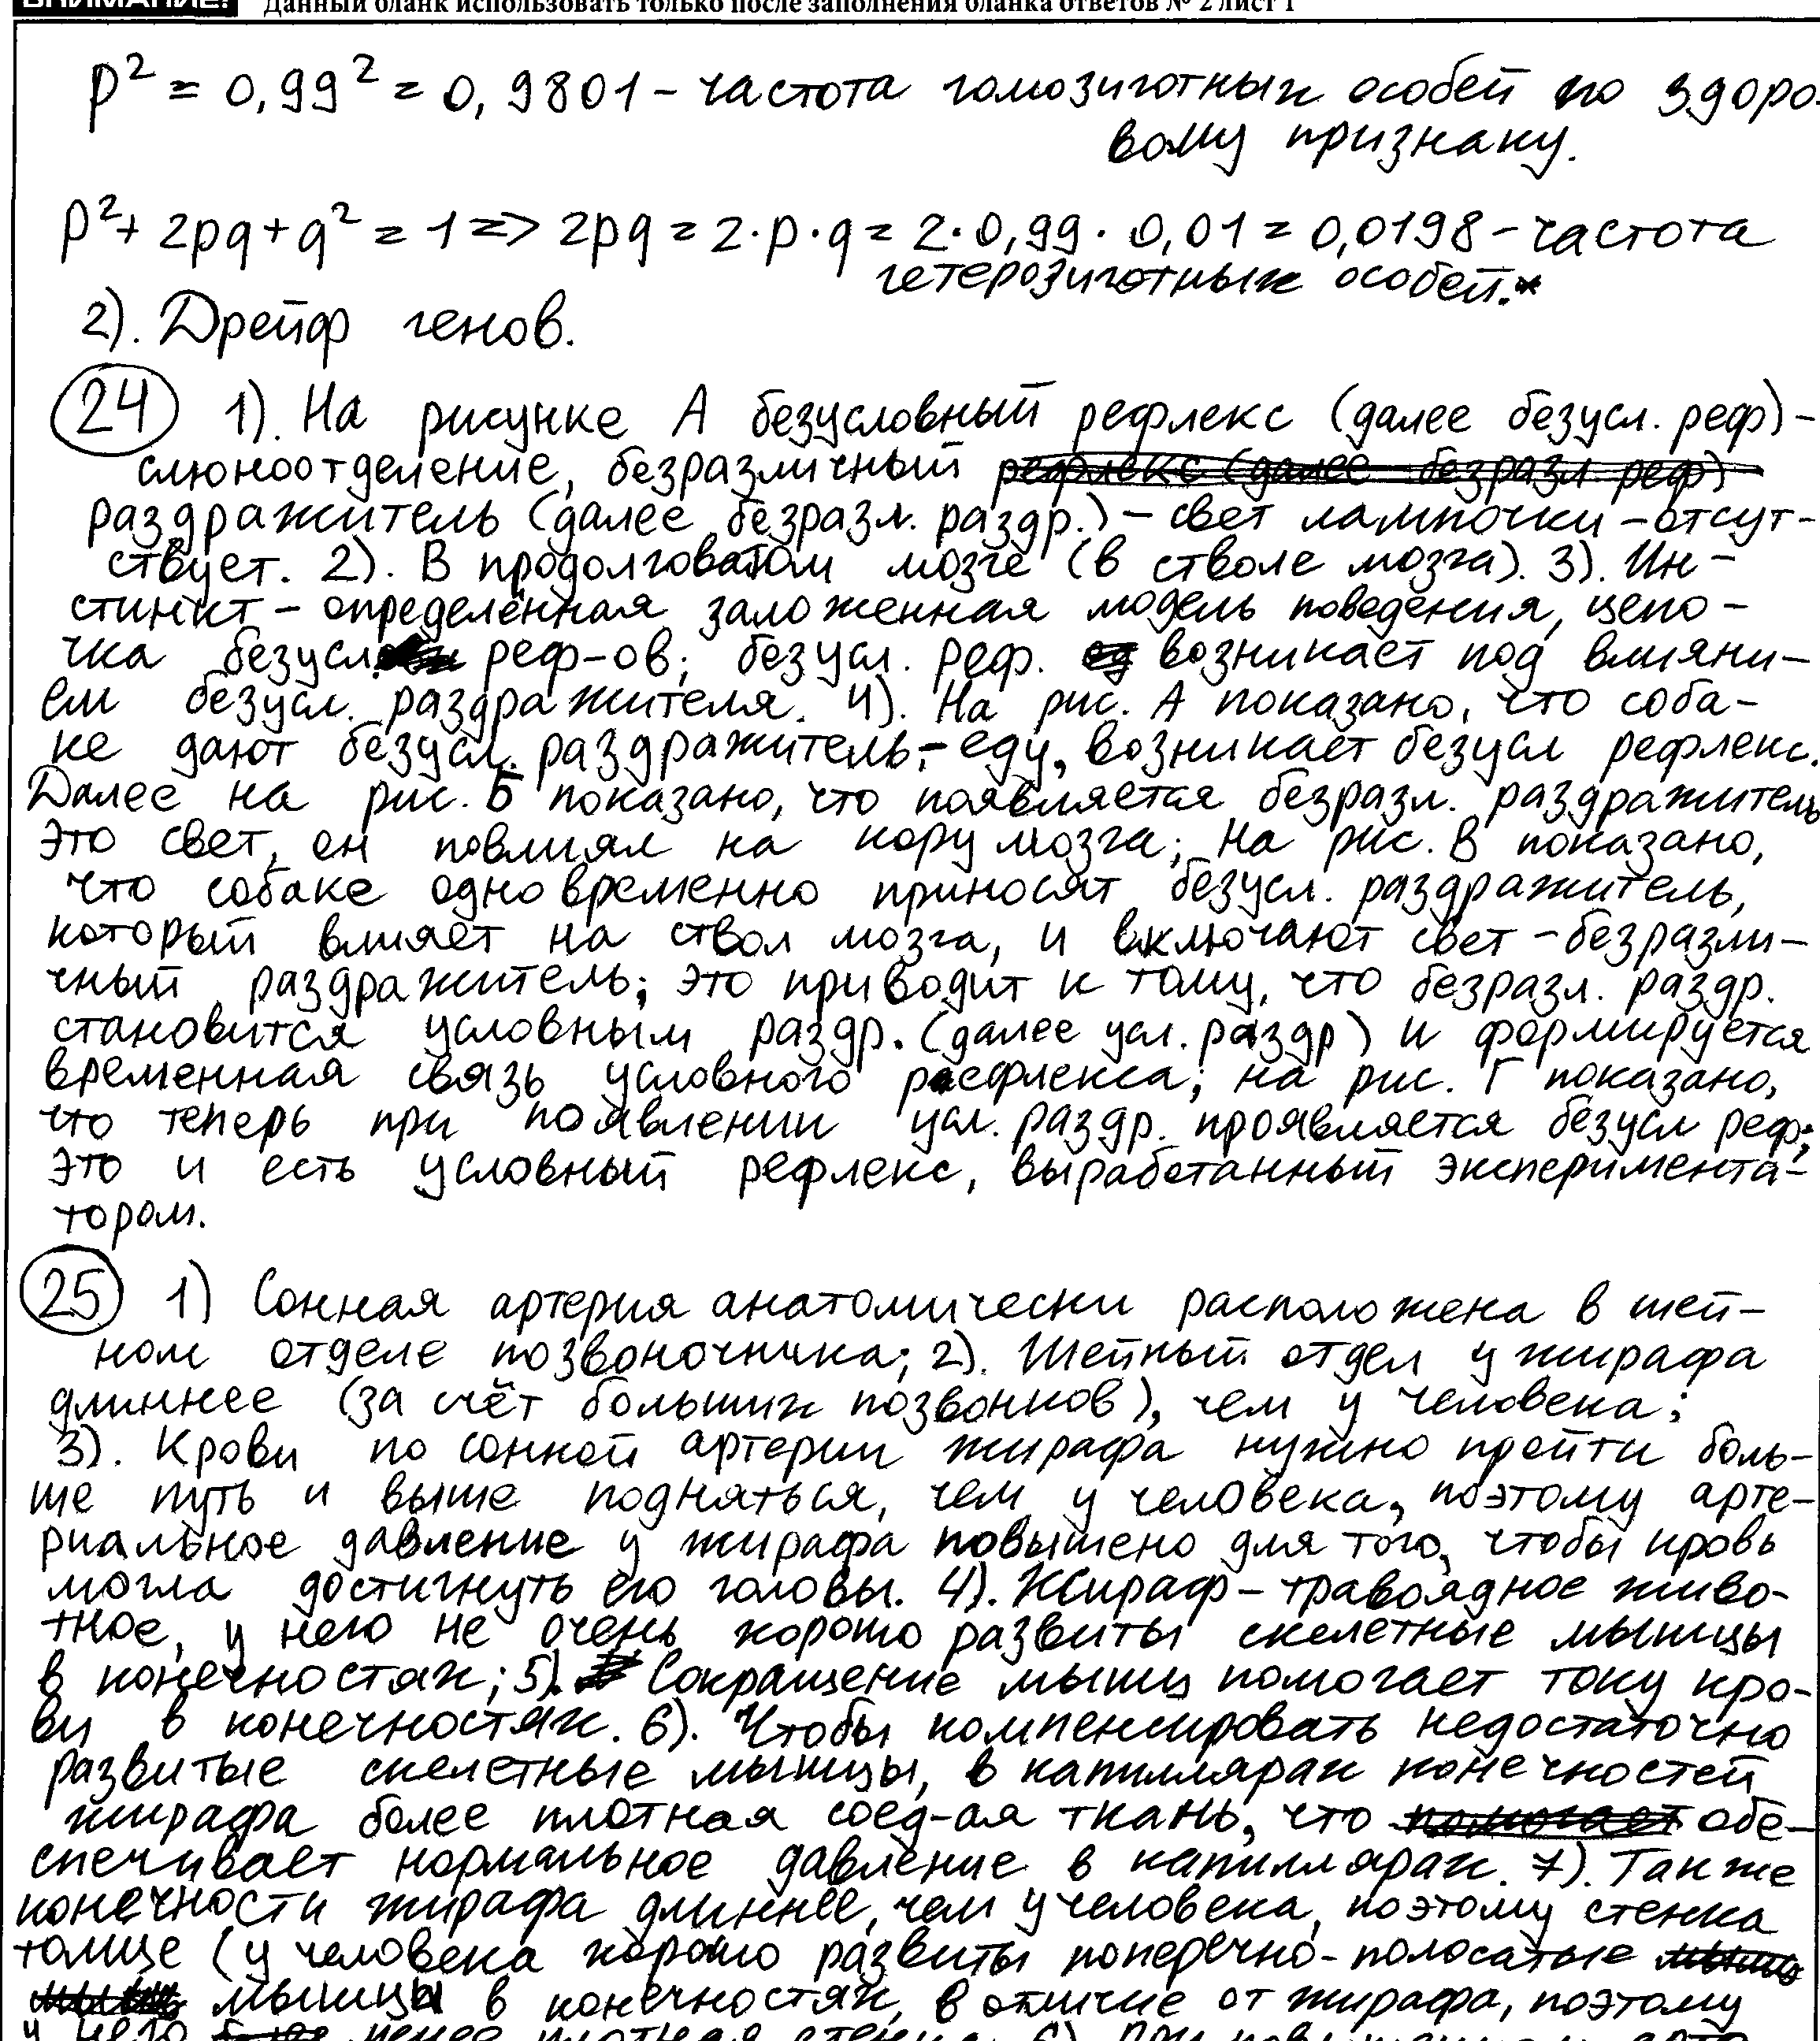 ВНИМАНИЕ! Данный бланк использовать только после заполнения бланка ответов № 2 лист 1
p² = 0,99² = 0,9801 – частота гомозиготных особей по здоро-
вому признаку.
p² + 2pq + q² = 1 => 2pq = 2·p·q = 2·0,99·0,01 = 0,0198 – частота
гетерозиготных особей.*
2). Дрейф генов.
24 1). На рисунке А безусловный рефлекс (далее безусл. реф) –
слюноотделение, безразличный рефлекс (далее безразл. реф)
раздражитель (далее безразл. раздр.) – свет лампочки – отсут-
ствует. 2). В продолговатом мозге (в стволе мозга). 3). Ин-
стинкт – определённая заложенная модель поведения, цепо-
чка безусл. реф-ов; безусл. реф. возникает под влияни-
ем безусл. раздражителя. 4). На рис. А показано, что соба-
ке дают безусл. раздражитель, – еду, возникает безусл рефлекс.
Далее на рис. Б показано, что появляется безразл. раздражитель
это свет, он повлиял на кору мозга; На рис. В показано,
что собаке одновременно приносят безусл. раздражитель,
который влияет на ствол мозга, и включают свет – безразли-
чный раздражитель; это приводит к тому, что безразл. раздр.
становится условным раздр. (далее усл. раздр) и формируется
временная связь условного рефлекса; на рис. Г показано,
что теперь при появлении усл. раздр. проявляется безусл реф;
это и есть условный рефлекс, выработанный эксперимента-
тором.
25 1) Сонная артерия анатомически расположена в шей-
ном отделе позвоночника; 2). Шейный отдел у жирафа
длиннее (за счёт больших позвонков), чем у человека;
3). Крови по сонной артерии жирафа нужно пройти боль-
ше путь и выше подняться, чем у человека, поэтому арте-
риальное давление у жирафа повышено для того, чтобы кровь
могла достигнуть его головы. 4). Жираф – травоядное живо-
тное, у него не очень хорошо развиты скелетные мышцы
в конечностях; 5). Сокращение мышц помогает току кро-
ви в конечностях. 6). Чтобы компенсировать недостаточно
развитые скелетные мышцы, в капиллярах конечностей
жирафа более плотная соед-ая ткань, что помогает обе-
спечивает нормальное давление в капиллярах. 7). Также
конечности жирафа длиннее, чем у человека, поэтому стенка
толще (у человека хорошо развиты поперечно-полосатые
мышцы в конечностях, в отличие от жирафа, поэтому
у него менее плотная стенка